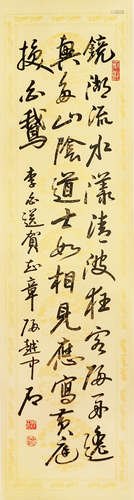 鏡湖流水漾清波狂客歸舟逸
興多山陰道士如相見應寫黃庭
換白鵝 李白送賀知章歸越中 石